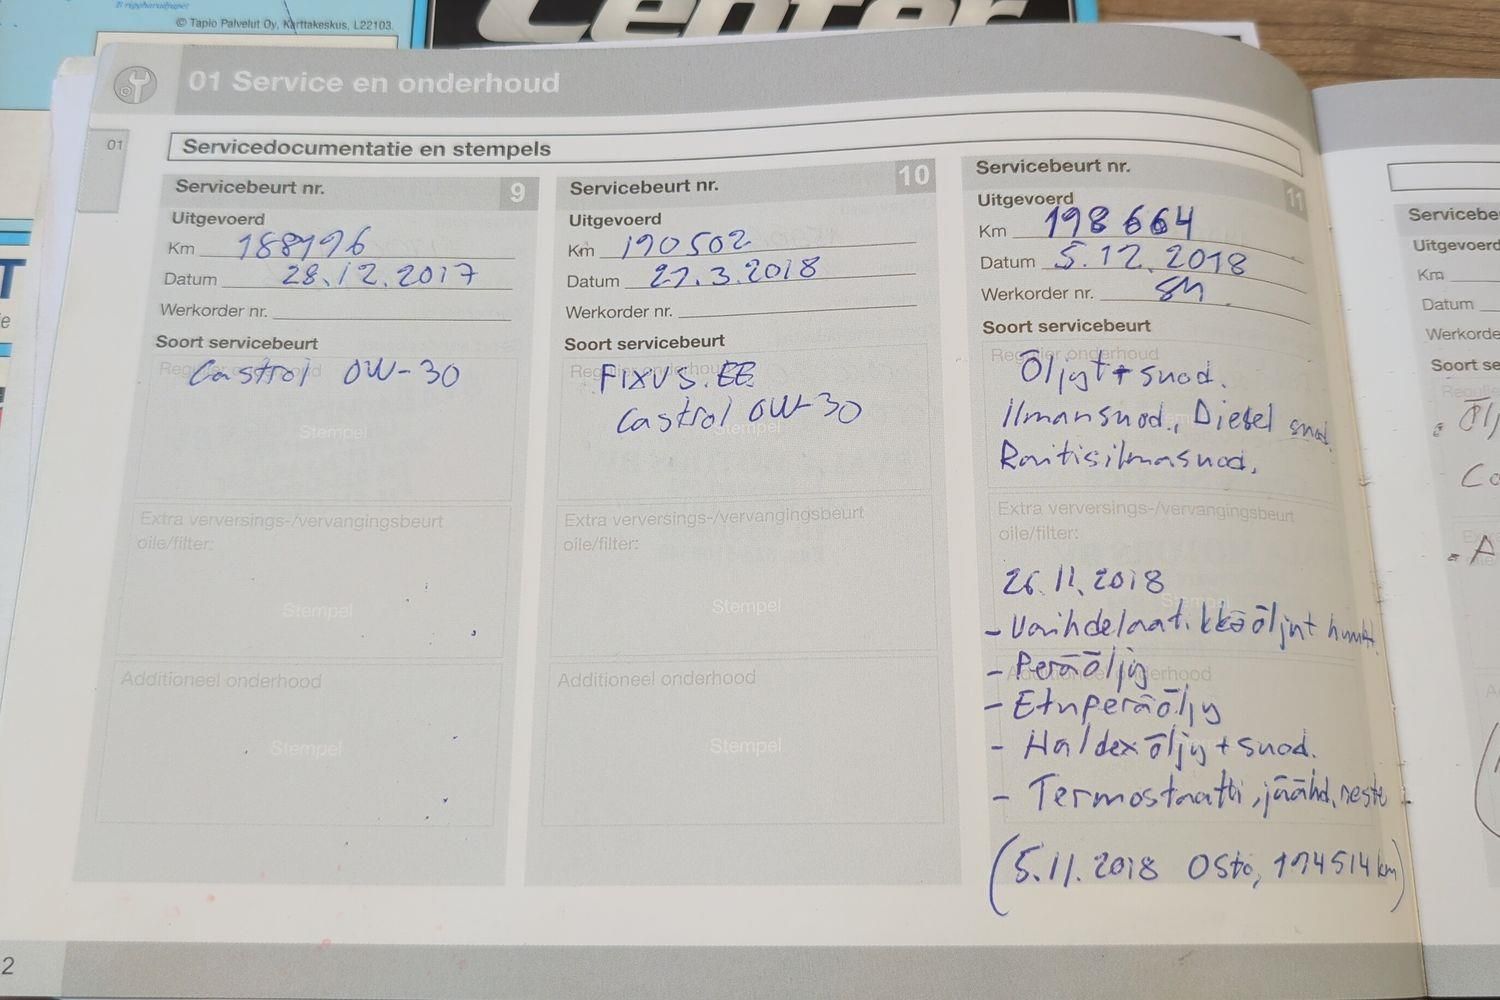 © Tapio Palvelut Oy, Karttakeskus, L22103.
Center
01 Service en onderhoud
01
Servicedocumentatie en stempels
Servicebeurt nr. 9
Uitgevoerd
Km 188196
Datum 28.12.2017
Werkorder nr.
Soort servicebeurt
Regulier onderhoud
Castrol 0W-30
Stempel
Extra verversings-/vervangingsbeurt
oile/filter:
Stempel
Additioneel onderhoud
Stempel
Servicebeurt nr. 10
Uitgevoerd
Km 190502
Datum 27.3.2018
Werkorder nr.
Soort servicebeurt
Regulier onderhoud
FIXUS.EE
Castrol 0W-30
Stempel
Extra verversings-/vervangingsbeurt
oile/filter:
Stempel
Additioneel onderhoud
Stempel
Servicebeurt nr. 11
Uitgevoerd
Km 198664
Datum 5.12.2018
Werkorder nr.
Soort servicebeurt
Regulier onderhoud
Öljyt + suod.
Ilmansuod., Diesel suod.
Raitisilmasuod.
Extra verversings-/vervangingsbeurt
oile/filter:
26.11.2018
Stempel
- Vaihdelaatikkoöljyt
- Peräöljy
Additioneel onderhoud
- Etuperäöljy
- Haldexöljy + suod.
- Termostaatti, jäähd.neste
(5.11.2018 Osto, 194514 km)
2
Servicebe
Uitgevoerd
Km
Datum
Werkorde
Soort se